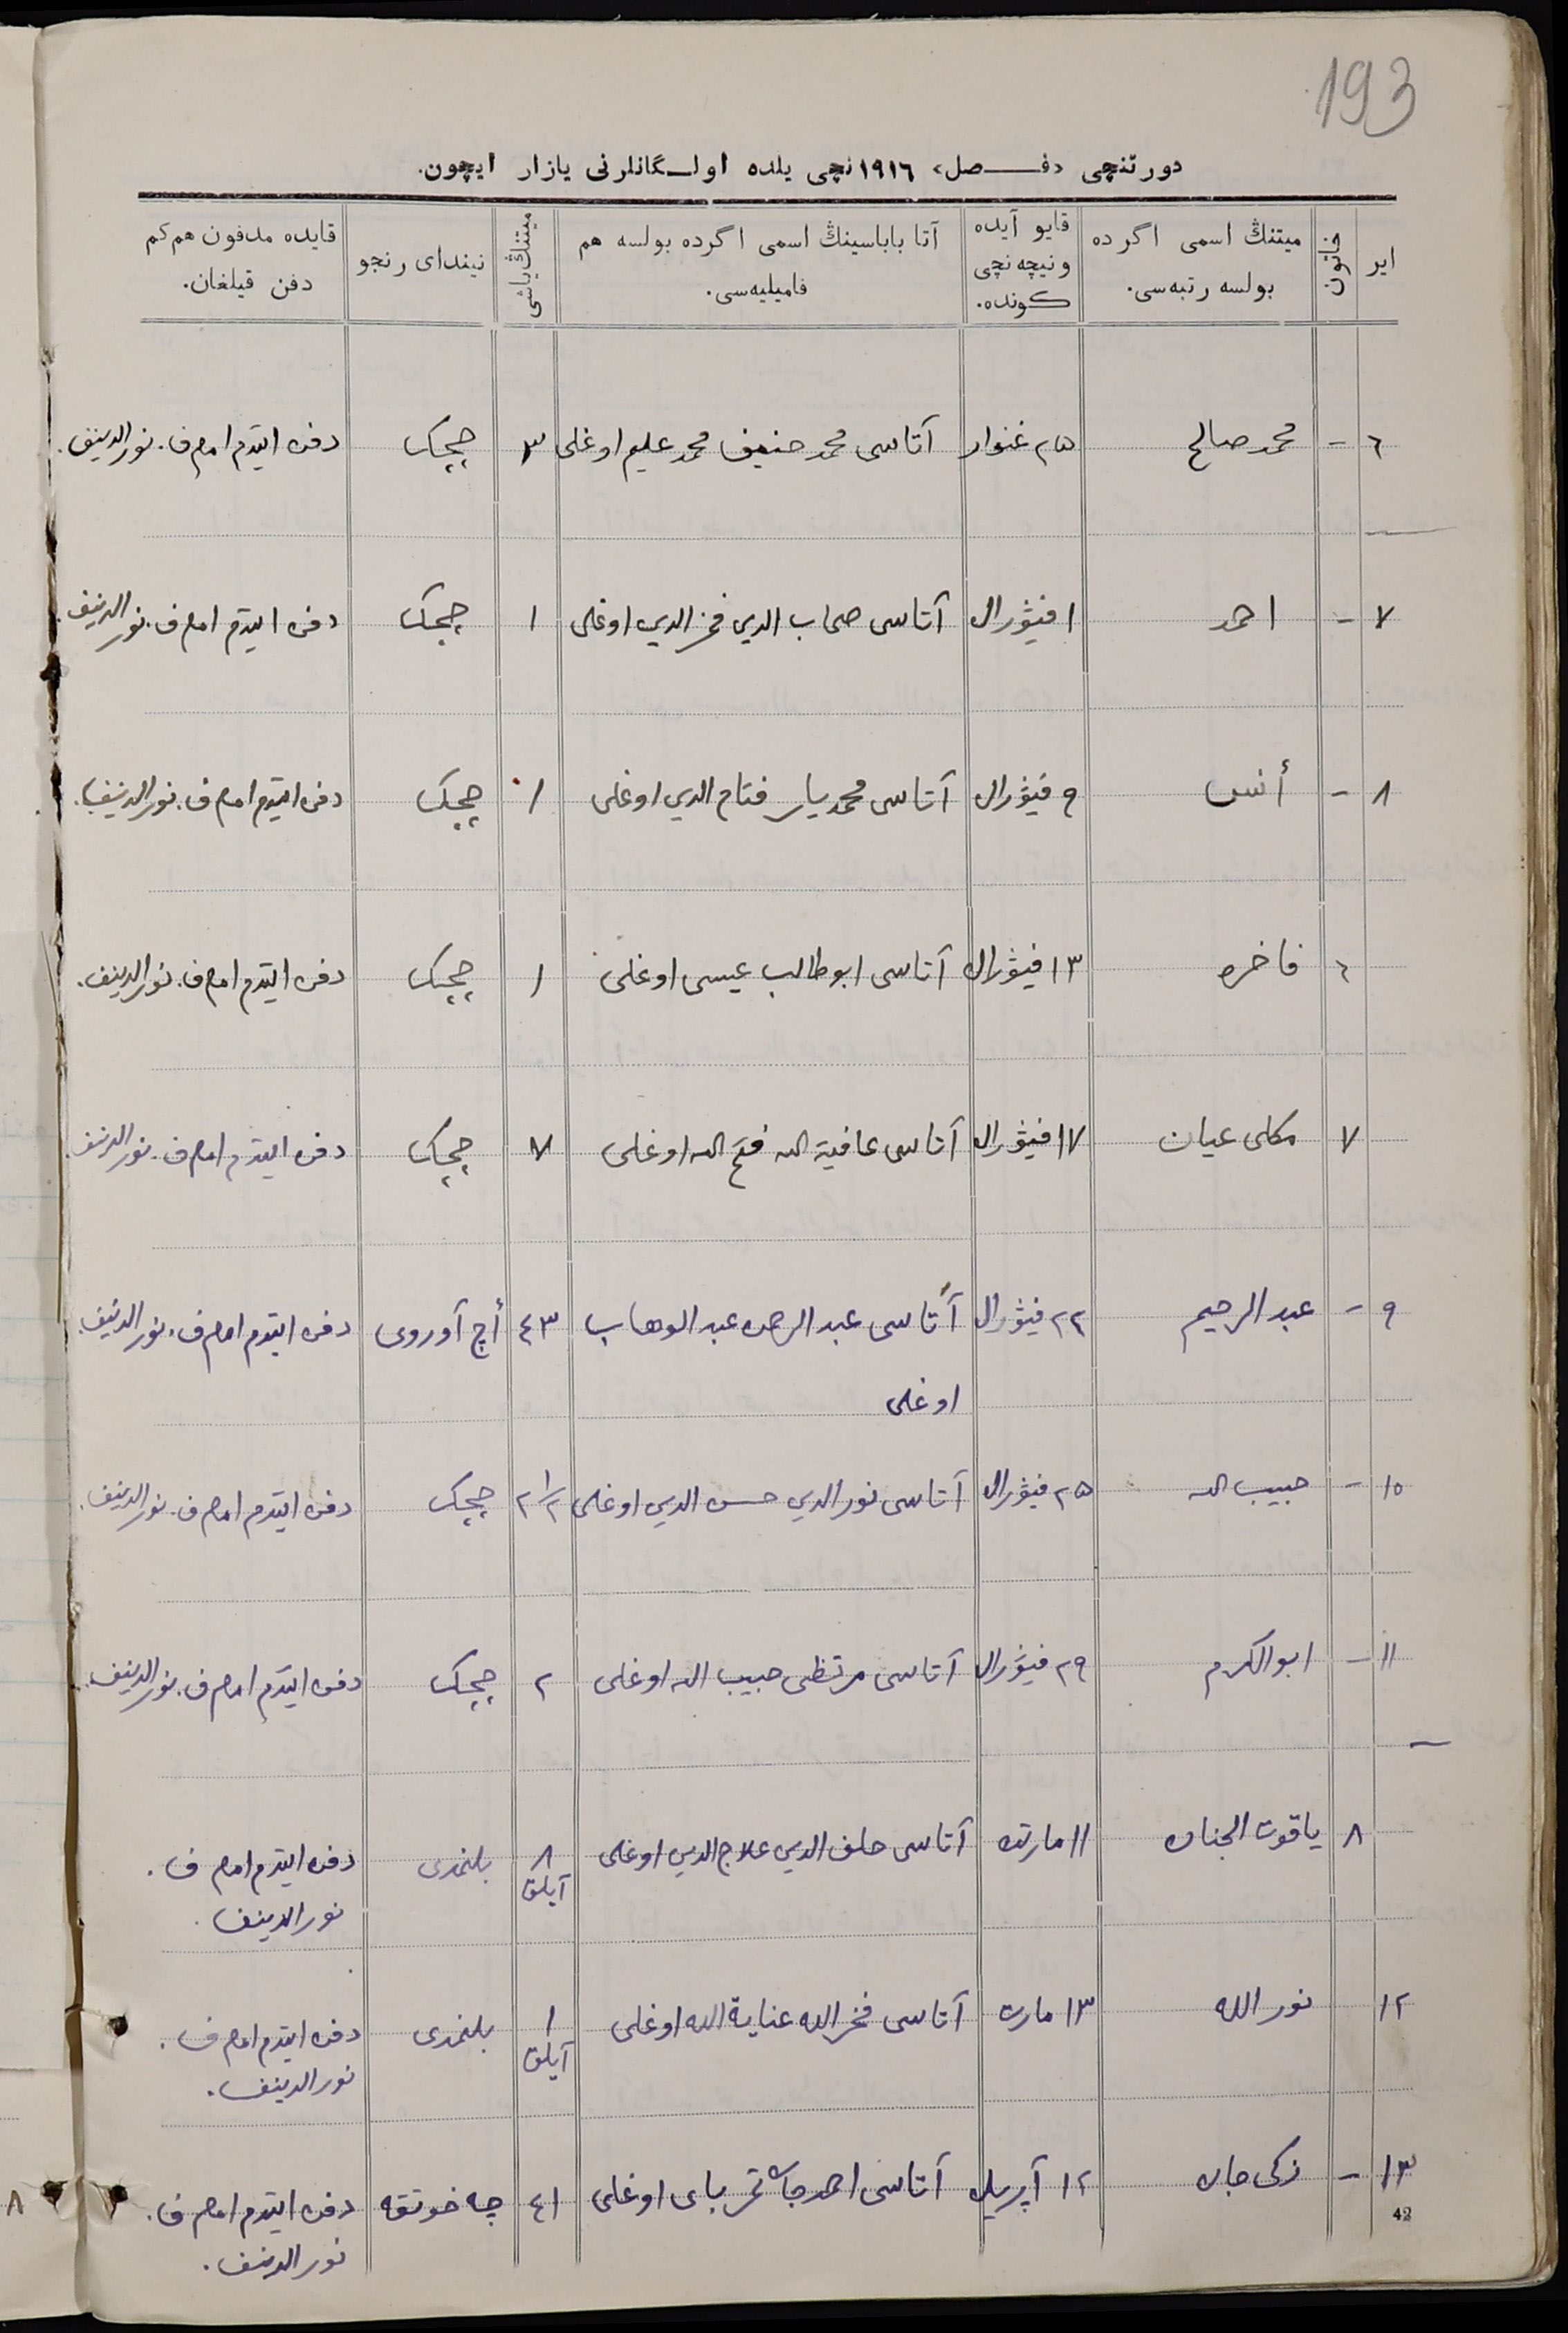 193
دورتنچی «فـــصل» ١٩١٦نچی یلده اولـگانلرنی یازار ایچون.
ایر
خاتون
میتنڭ اسمی اگرده بولسه رتبه‌سی.
قایو آیده ونیچه‌نچی كونده.
آتا باباسینڭ اسمی اگرده بولسه هم فامیلیه‌سی.
میتنڭ یاشی
نیندای رنجو
قایده مدفون هم كم دفن قیلغان.
٦ - محمد صالح ٢٥ غنوار آتاسی محمد حنیف محمد علیم اوغلی ٣ چچك دفن ایتدم امام ف. نورالدینف.
٧ - احمد ١ فیۋرال آتاسی صحاب الدین فخرالدین اوغلی ١ چچك دفن ایتدم امام ف. نورالدینف.
٨ - أنس ٩ فیۋرال آتاسی محمدیار فتاح الدین اوغلی ١ چچك دفن ایتدم امام ف. نورالدینف.
٦ فاخره ١٣ فیۋرال آتاسی ابوطالب عیسی اوغلی ١ چچك دفن ایتدم امام ف. نورالدینف.
٧ عیان ١٧ فیۋرال آتاسی عافیة الله فتح الله اوغلی ٧ چچك دفن ایتدم امام ف. نورالدینف.
٩ - عبد الرحیم ٢٢ فیۋرال آتاسی عبد الرحمن عبد الوهاب ٤٣ أچ آوروی دفن ایتدم امام ف. نورالدینف.
اوغلی
١٠ - حبیب الله ٢٥ فیۋرال آتاسی نورالدین حسن الدین اوغلی ٢ ١/٢ چچك دفن ایتدم امام ف. نورالدینف.
١١ - ابوالكرم ٢٩ فیۋرال آتاسی مرتظی حبیب الله اوغلی ٢ چچك دفن ایتدم امام ف. نورالدینف.
٨ یاقوت الجنان ١١ مارتده آتاسی خلف الدین علاج الدین اوغلی ٨ آیلق بلنمدی دفن ایتدم امام ف.
نورالدینف.
١٢ نور الله ١٣ مارت آتاسی فخر الله عنایة الله اوغلی ١ آیلق بلنمدی دفن ایتدم امام ف.
نورالدینف.
١٣ - زكی جان ١٢ آپریل آتاسی احمدجان تمر بای اوغلی ٤١ چه خوتقه دفن ایتدم امام ف.
نورالدینف.
42
٨